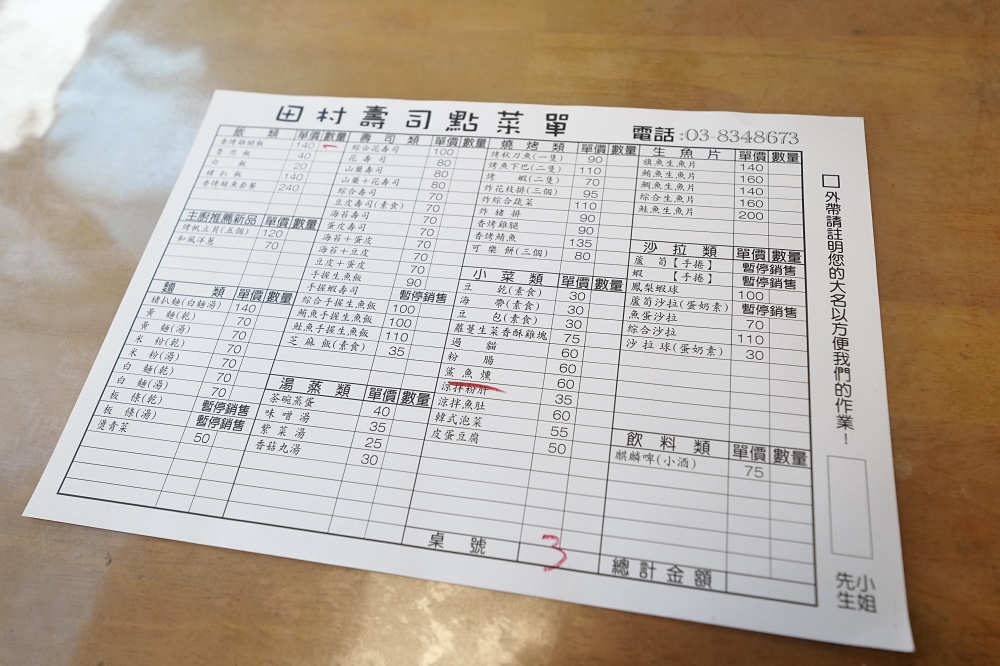 田村壽司點菜單
電話:03-8348673
飯類 單價 數量
香烤雞腿飯 140
魯肉飯 40
白飯 20
豬扒飯 140
香烤鯖魚套餐 240
主廚推薦新品 單價 數量
烤帆立貝(五個) 120
和風洋蔥 70
麵類 單價 數量
豬扒麵(白麵湯) 140
黃麵(乾) 70
黃麵(湯) 70
米粉(乾) 70
米粉(湯) 70
白麵(乾) 70
白麵(湯) 70
板條(乾) 暫停銷售
板條(湯) 暫停銷售
燙青菜 50
壽司類 單價 數量
綜合花壽司 100
花壽司 80
山藥壽司 80
山藥+花壽司 80
綜合壽司 70
豆皮壽司(素食) 70
海苔壽司 70
蛋皮壽司 70
海苔+蛋皮 70
海苔+豆皮 70
豆皮+蛋皮 70
手握生魚飯 90
手握蝦壽司 暫停銷售
綜合手握生魚飯 100
鮪魚手握生魚飯 100
鮭魚手握生魚飯 110
芝麻飯(素食) 35
湯蒸類 單價 數量
茶碗蒸蛋 40
味噌湯 35
紫菜湯 25
香菇丸湯 30
燒烤類 單價 數量
烤秋刀魚(一隻) 90
烤魚下巴(二隻) 110
烤蝦(二隻) 70
炸花枝排(三個) 95
炸綜合蔬菜 110
炸豬排 90
香烤雞腿 90
香烤鯖魚 135
可樂餅(三個) 80
小菜類 單價 數量
豆乾(素食) 30
海帶(素食) 30
豆包(素食) 30
蘿蔓生菜香酥雞塊 75
過貓 60
粉腸 60
鯊魚燻 60
涼拌粉肝 35
涼拌魚肚 60
韓式泡菜 55
皮蛋豆腐 50
桌號 3
生魚片 單價 數量
旗魚生魚片 140
鮪魚生魚片 160
鯛魚生魚片 140
綜合生魚片 160
鮭魚生魚片 200
沙拉類 單價 數量
蘆筍【手捲】 暫停銷售
蝦【手捲】 暫停銷售
鳳梨蝦球 100
蘆筍沙拉(蛋奶素) 暫停銷售
魚蛋沙拉 70
綜合沙拉 110
沙拉球(蛋奶素) 30
飲料類 單價 數量
麒麟啤(小酒) 75
總計金額
□外帶請註明您的大名以方便我們的作業！
小姐
先生